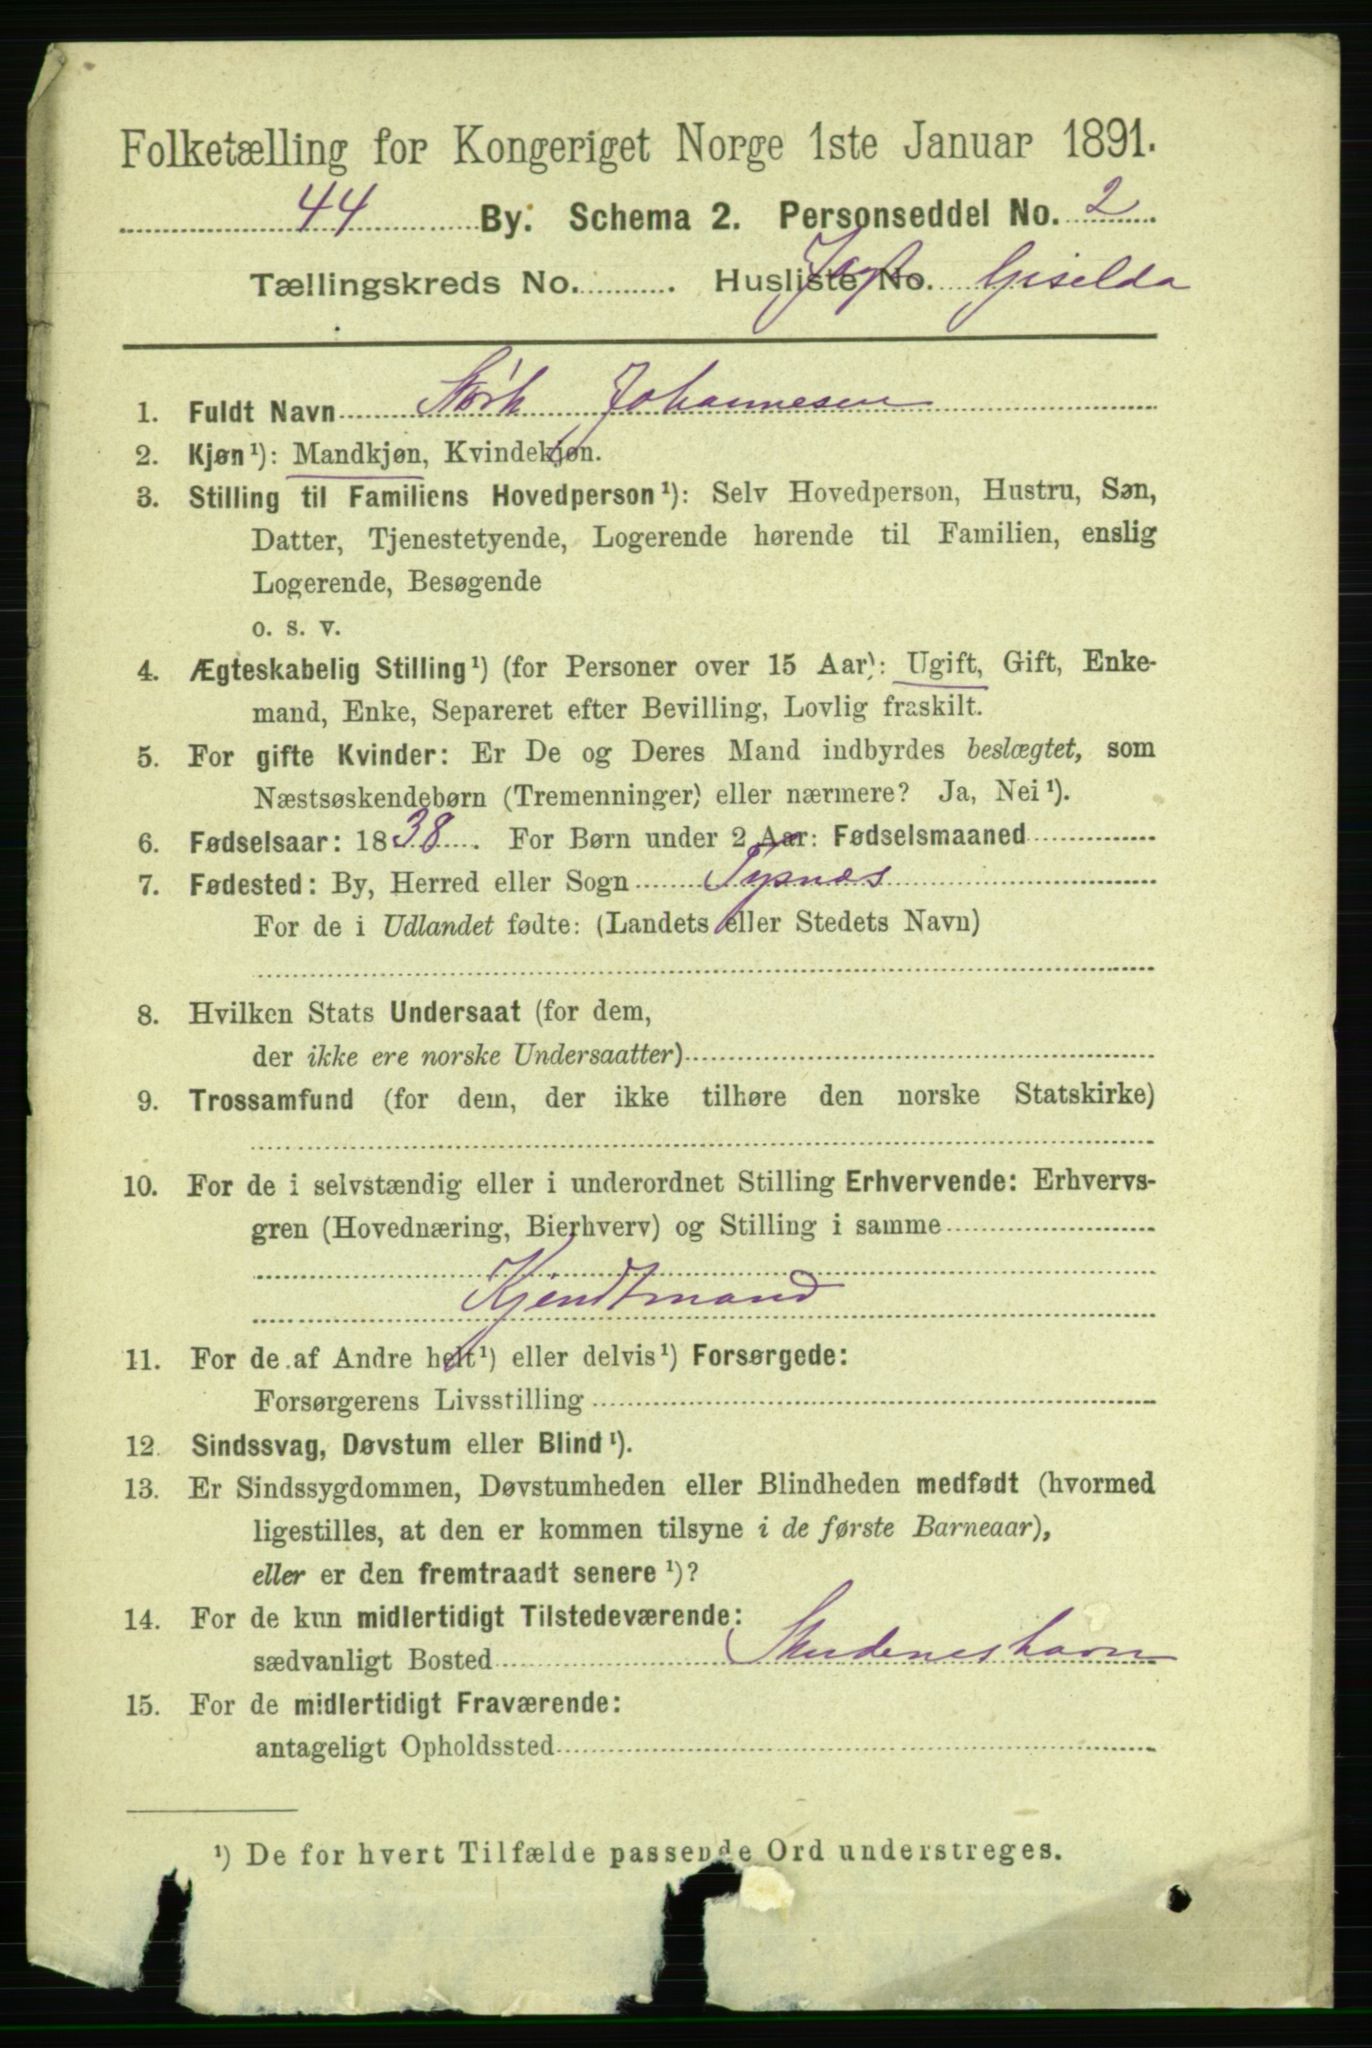 Folketælling for Kongeriget Norge 1ste Januar 1891.
44 By. Schema 2. Personseddel No. 2
Tællingskreds No. . Husliste No. Jagt Giselda
1. Fuldt Navn Størk Johannesen
2. Kjøn¹): Mandkjøn, Kvindekjøn.
3. Stilling til Familiens Hovedperson¹): Selv Hovedperson, Hustru, Søn,
Datter, Tjenestetyende, Logerende hørende til Familien, enslig
Logerende, Besøgende
o. s. v.
4. Ægteskabelig Stilling¹) (for Personer over 15 Aar): Ugift, Gift, Enke-
mand, Enke, Separeret efter Bevilling, Lovlig fraskilt.
5. For gifte Kvinder: Er De og Deres Mand indbyrdes beslægtet, som
Næstsøskendebørn (Tremenninger) eller nærmere? Ja, Nei¹).
6. Fødselsaar: 1838. For Børn under 2 Aar: Fødselsmaaned
7. Fødested: By, Herred eller Sogn Tysnæs
For de i Udlandet fødte: (Landets eller Stedets Navn)
8. Hvilken Stats Undersaat (for dem,
der ikke ere norske Undersaatter)
9. Trossamfund (for dem, der ikke tilhøre den norske Statskirke)
10. For de i selvstændig eller i underordnet Stilling Erhvervende: Erhvervs-
gren (Hovednæring, Bierhverv) og Stilling i samme
Kjendtmand
11. For de af Andre helt¹) eller delvis¹) Forsørgede:
Forsørgerens Livsstilling
12. Sindssvag, Døvstum eller Blind¹).
13. Er Sindssygdommen, Døvstumheden eller Blindheden medfødt (hvormed
ligestilles, at den er kommen tilsyne i de første Barneaar),
eller er den fremtraadt senere¹)?
14. For de kun midlertidigt Tilstedeværende:
sædvanligt Bosted Skudeneshavn
15. For de midlertidigt Fraværende:
antageligt Opholdssted
¹) De for hvert Tilfælde passende Ord understreges.